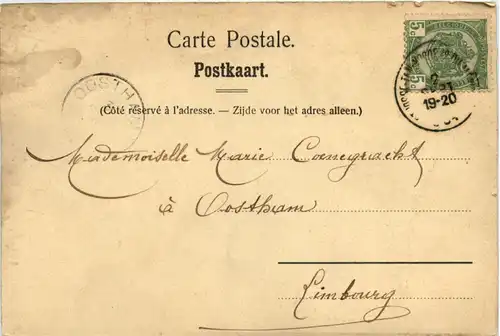 Carte Postale.
Postkaart.
(Côté réservé à l'adresse. — Zijde voor het adres alleen.)
OOSTHAM
5c 5c
19-20
Mademoiselle Marie Coenegracht
à Oostham
Limbourg